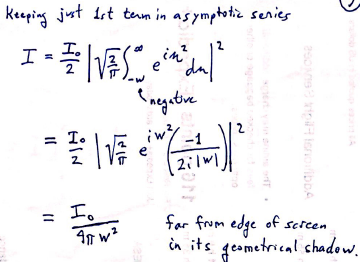 Keeping just 1st term in asymptotic series
I = I₀/2 |√(2/π) ∫_{-w}^{∞} e^{iu²} du|²
negative
= I₀/2 |√(2/π) e^{iw²} (-1/(2i|w|))|²
= I₀/(4πw²) far from edge of screen
in its geometrical shadow.